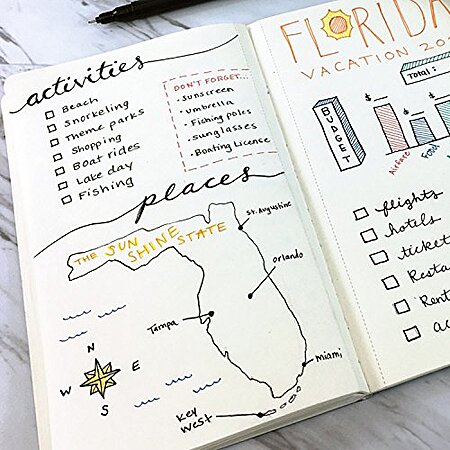 activities
Beach
Snorkeling
Theme parks
Shopping
Boat rides
Lake day
Fishing
DON'T FORGET...
Sunscreen
Umbrella
Fishing poles
Sunglasses
Boating License
places
THE SUN
SHINE STATE
St. Augustine
Orlando
Tampa
Miami
Key
West
N
W E
S
FLORIDA
VACATION
Total:
BUDGET
$
$
Airfare
Food
flights
hotels
ticket
Resta
Rent